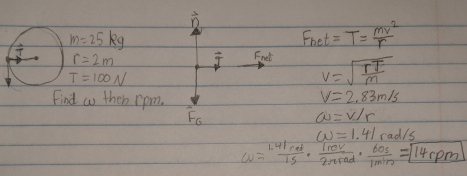 m=25 kg
r=2m
T=100N
Find ω then rpm.
T⃗
n⃗
T⃗
Fnet
F⃗G
Fnet = T = mv²/r
v = √(rT/m)
V = 2.83m/s
ω = v/r
ω = 1.41 rad/s
ω = 1.41 rad/1s · 1rev/2π rad · 60s/1min = 14rpm